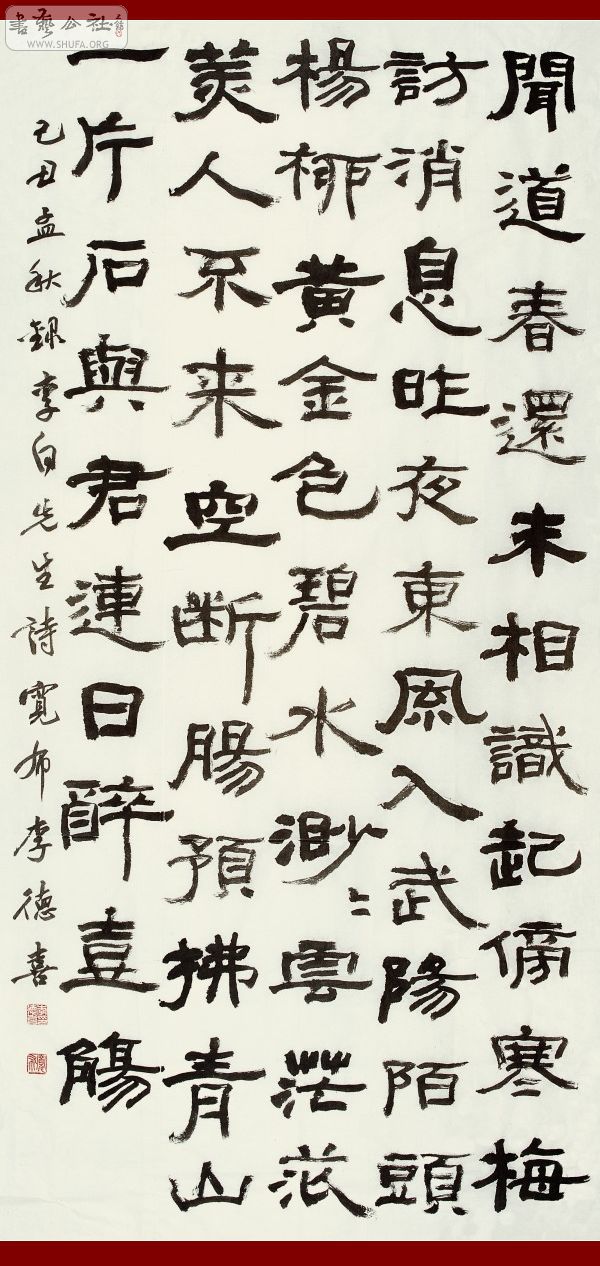 書藝公社
WWW.SHUFA.ORG
聞道春還未相識起傍寒梅
訪消息昨夜東風入武陽陌頭
楊柳黃金色碧水渺〻雲茫茫
美人不来空断腸預拂青山
一片石與君連日醉壺觴
己丑孟秋録李白先生詩寬李德喜